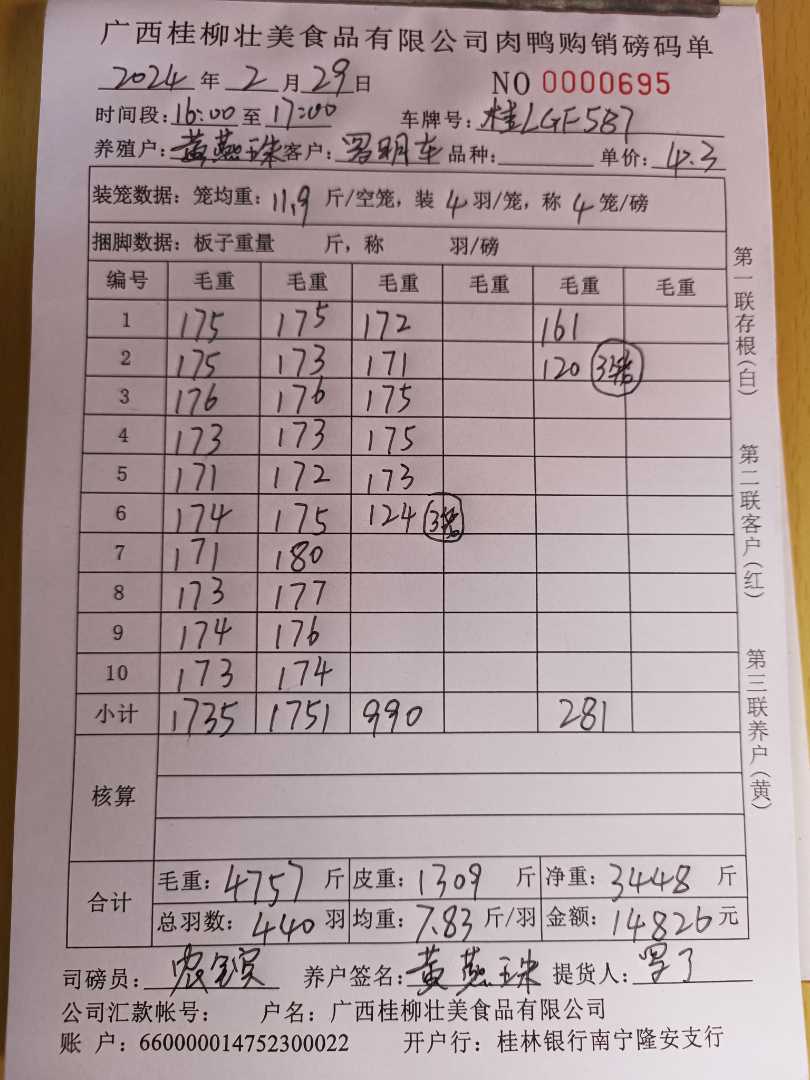 广西桂柳壮美食品有限公司肉鸭购销磅码单
2024 年 2 月 29 日 NO 0000695
时间段:16:00 至 17:00 车牌号:桂LGF587
养殖户:黄燕珠 客户:罗明车 品种: 单价:4.3
装笼数据:笼均重:11.9 斤/空笼,装 4 羽/笼,称 4 笼/磅
捆脚数据:板子重量 斤,称 羽/磅
编号 毛重 毛重 毛重 毛重 毛重 毛重
1 175 175 172 161
2 175 173 171 120 3笼
3 176 176 175
4 173 173 175
5 171 172 173
6 174 175 124 3笼
7 171 180
8 173 177
9 174 176
10 173 174
小计 1735 1751 990 281
核算
合计 毛重:4757 斤 皮重:1309 斤 净重:3448 斤
总羽数:440 羽 均重:7.83 斤/羽 金额:14826 元
司磅员: 养户签名:黄燕珠 提货人:
公司汇款帐号: 户名:广西桂柳壮美食品有限公司
账 户:660000014752300022 开户行:桂林银行南宁隆安支行
第一联存根(白) 第二联客户(红) 第三联养户(黄)